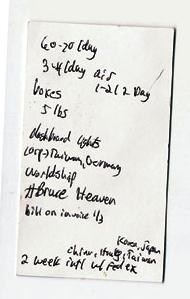 60-70/day
3-4/day air
1-2/2 Day
boxes
5 lbs
dashboard lights
Corp > Taiwan, Germany
Worldship
#Bruce Heaven
bill on invoice 1/3
Korea, Japan
China, Taiwan
2 week intl w/ Fedex